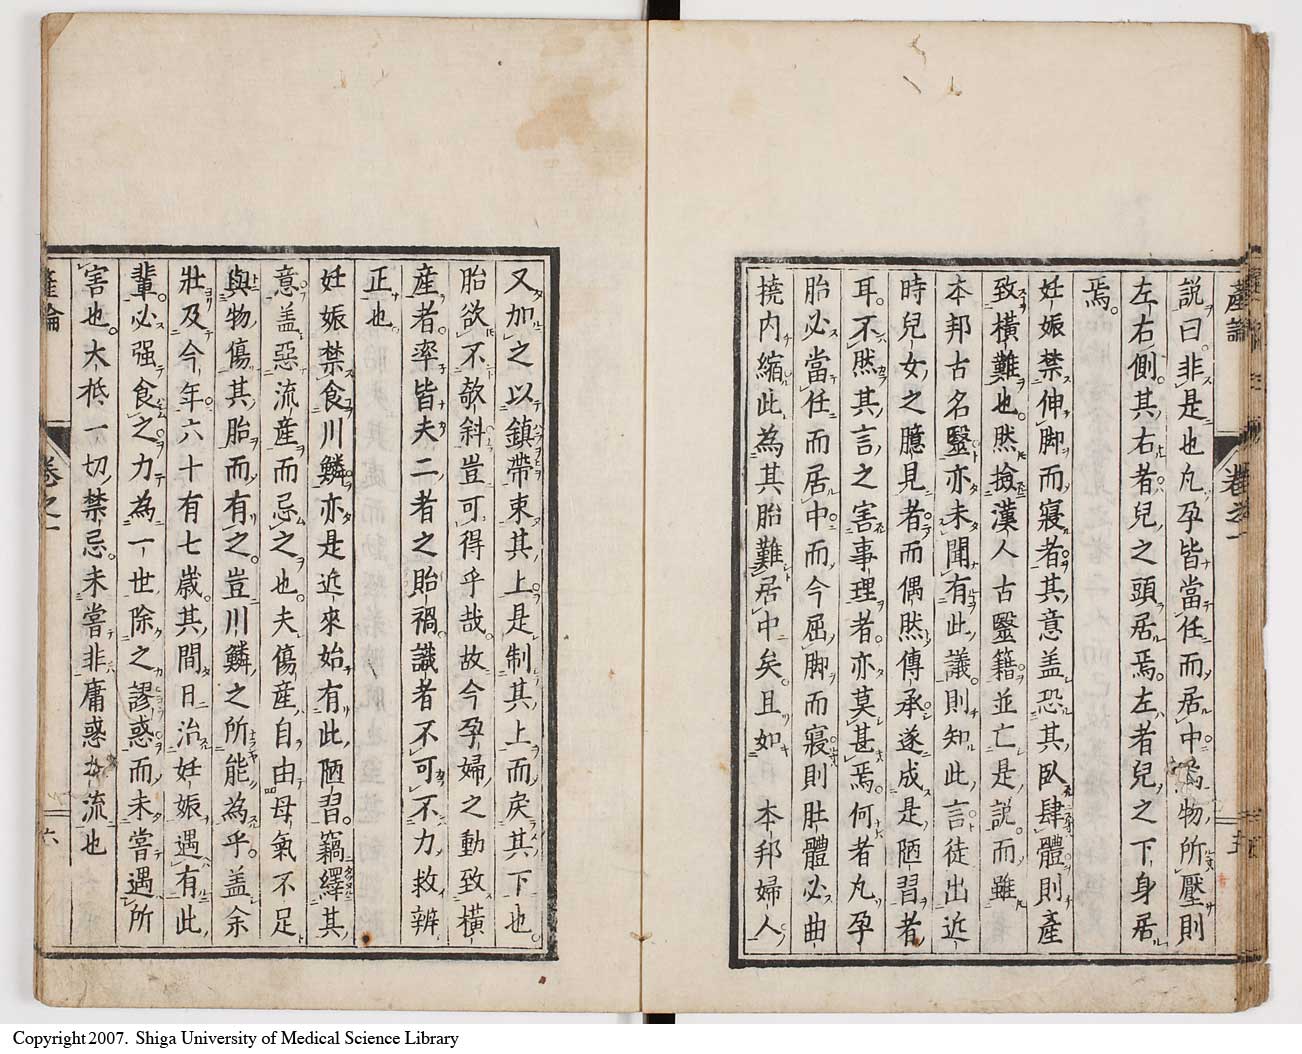 產論
卷之一
五
説曰非是也凡孕皆當任而居中為物所壓則
左右側其右者兒之頭居焉左者兒之下身居
焉。
妊娠禁伸脚而寝者其意盖恐其臥肆體則產
致橫難也然撿漢人古醫籍並亡是説而雖
本邦古名醫亦未聞有此議則知此言徒出近
時兒女之臆見者而偶然傳承遂成是陋習者
耳不然其言之害事理者亦莫甚焉何者凡孕
胎必當任而居中而今屈脚而寝則肚體必曲
撓内縮此為其胎難居中矣且如 本邦婦人
又加之以鎮帶束其上是制其上而戾其下也
胎欲不欹斜豈可得乎哉故今孕婦之動致橫
産者率皆夫二者之貽禍識者不可不力救辨
正也
妊娠禁食川鱗亦是近來始有此陋習竊繹其
意盖惡流産而忌之也夫傷産自由母氣不足
與物傷其胎而有之豈川鱗之所能為乎盖余
壯及今年六十有七嵗其間日治妊娠遇有此
輩必强食之力為一世除之謬惑而未嘗遇所
害也大柢一切禁忌未嘗非庸惑流也
產論
卷之一
六
Copyright 2007. Shiga University of Medical Science Library